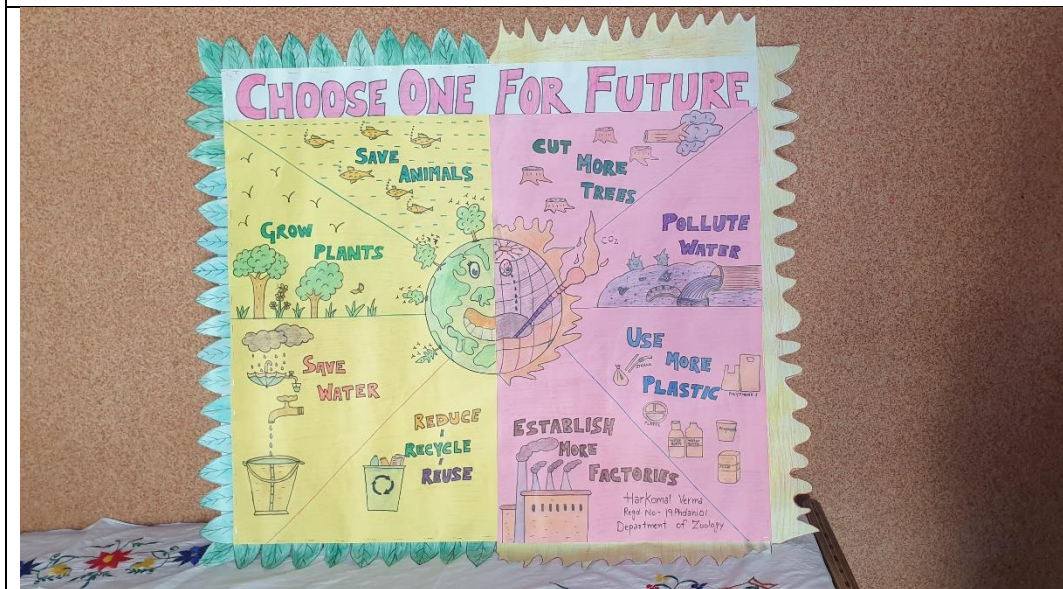 CHOOSE ONE FOR FUTURE
SAVE
ANIMALS
GROW
PLANTS
SAVE
WATER
REDUCE
RECYCLE
REUSE
CUT
MORE
TREES
CO₂
POLLUTE
WATER
USE
MORE
PLASTIC
ESTABLISH
MORE
FACTORIES
HarKomal Verma
Department of Zoology